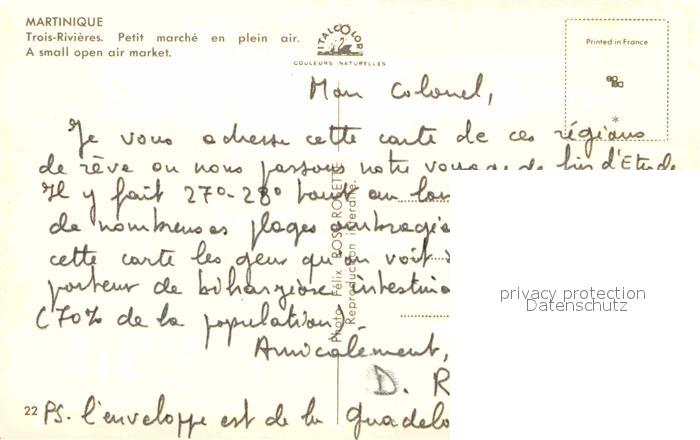 MARTINIQUE
Trois-Rivières. Petit marché en plein air.
A small open air market.
ITALCOLOR
COULEURS NATURELLES
Printed in France
Mon Colonel,
Je vous adresse cette carte de ces régions
de rêve ou nous passons notre voyage de fin d'Etude
Il y fait 27°-28° tout au lon
de nombreuses plages ombragée
cette carte les gens qu'on voit s
porteur de bilharziose intestina
(70% de la population.
Amicalement,
D. R
22
PS. l'enveloppe est de la Guadelo
Photo Félix ROSE-ROSETTE
Reproduction interdite
privacy protection
Datenschutz